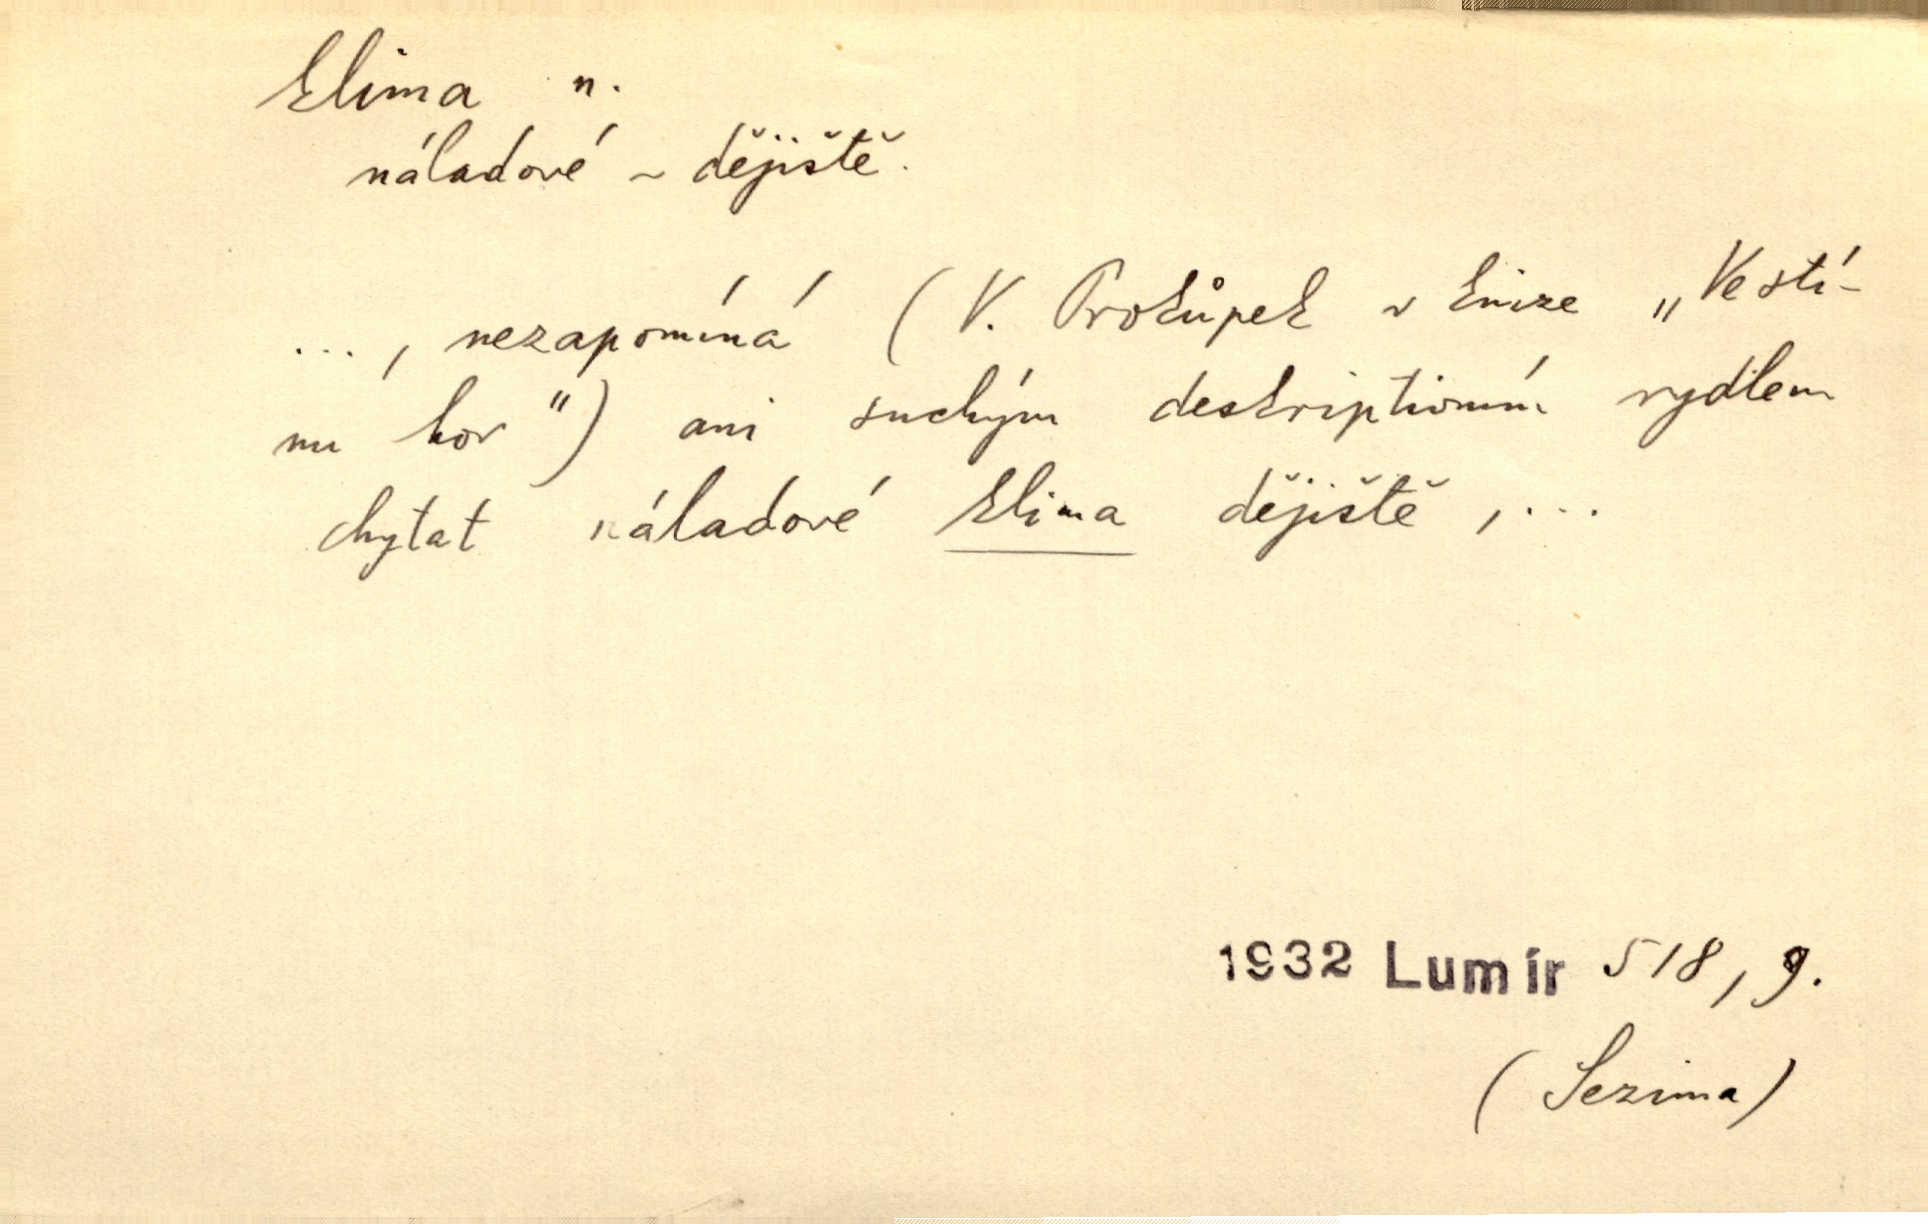 klima n.
náladové ~ dějiště.
..., nezapomíná (V. Prokůpek v knize „Ve stí-
nu hor") ani suchým deskriptivním rydlem
chytat náladové klima dějiště, ...
1932 Lumír 518, 9.
(Sezima)